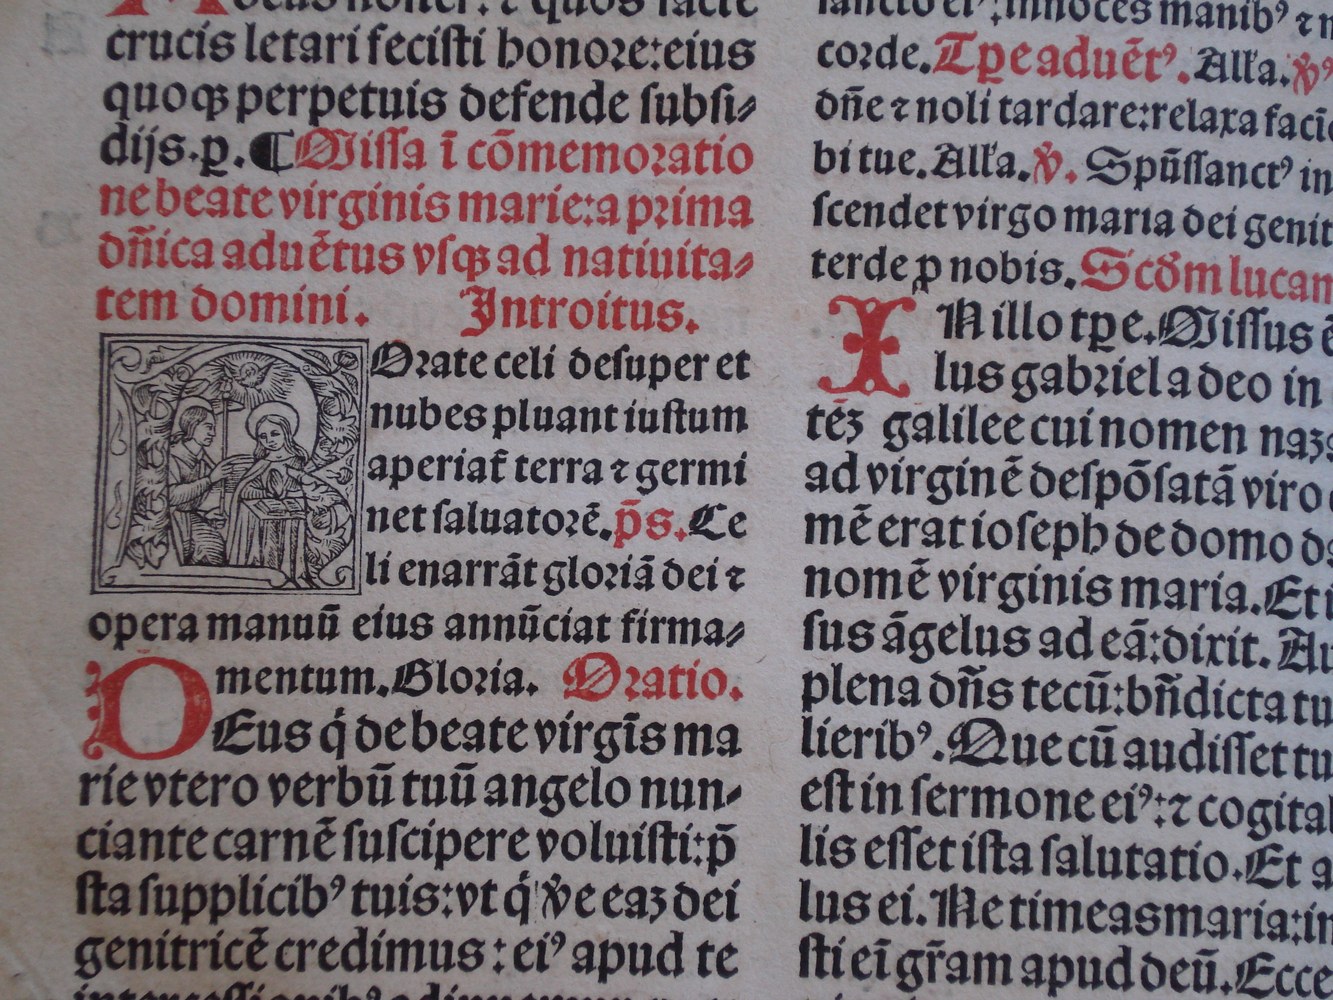 crucis letari fecisti honore: eius
quoqꝫ perpetuis defende subsi⸗
dijs. ꝑ. ¶ Missa ī cōmemoratio
ne beate virginis marie: a prima
dñica aduētus vsqꝫ ad natiuita⸗
tem domini. Introitus.
Orate celi desuper et
nubes pluant iustum
aperiat᷑ terra ⁊ germi
net saluatorē. p̄s. Ce
li enarrāt gloriā dei ⁊
opera manuū eius annūciat firma⸗
mentum. Gloria. Oratio.
DEus q́ de beate virgīs ma
rie vtero verbū tuū angelo nun⸗
ciante carnē suscipere voluisti: p̄
sta supplicibꝰ tuis: vt q́ ꝟe eaꝫ dei
genitricē credimus: eiꝰ apud te
sancto eiꝰ: innocēs manibꝰ ⁊
corde. Tꝑe aduētꝰ. Alľa. ꝟꝰ
dñe ⁊ noli tardare: relaxa
bi tue. Alľa. ꝟ. Spūssanctꝰ in
scendet virgo maria dei
terde ꝓ nobis. Scd̄m
IN illo tꝑe. Missus ē
lus gabriel a deo in
tēꝫ galilee cui nomen
ad virginē despōsatā viro
mē erat ioseph de domo
nomē virginis maria. Et
sus āgelus ad eā: dixit.
plena dñs tecū: bñdicta tu
lieribꝰ. Que cū audisset
est in sermone eiꝰ: ⁊
lis esset ista salutatio. Et
lus ei. Ne timeas maria:
sti eī gr̄am apud deū. Ecce